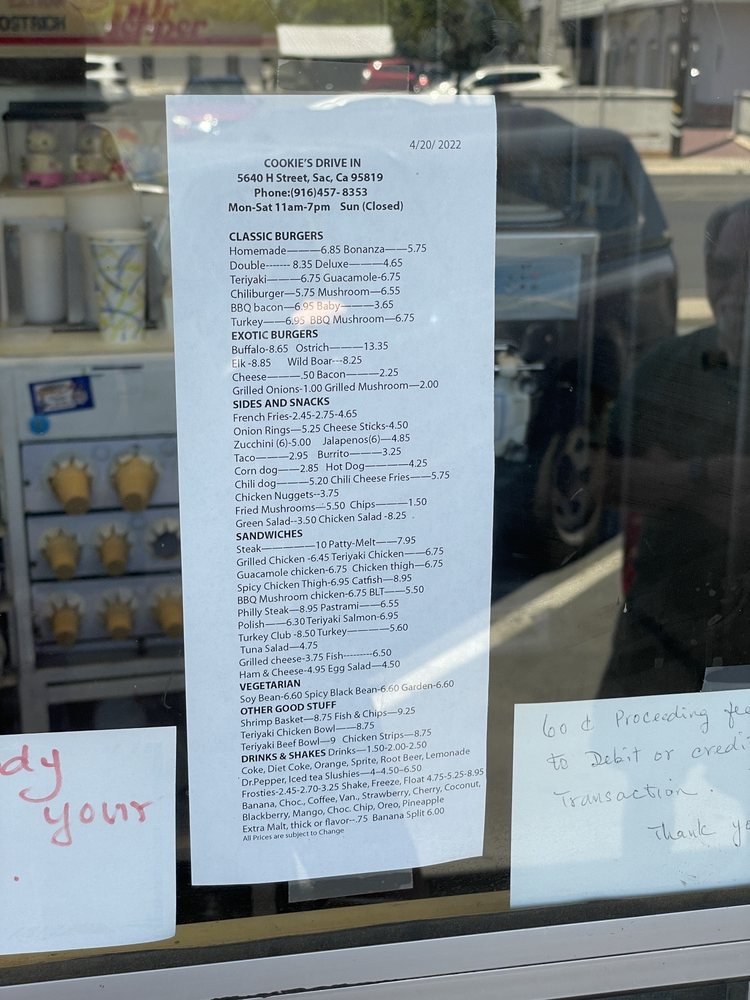 OSTRICH
4/20/ 2022
COOKIE'S DRIVE IN
5640 H Street, Sac, Ca 95819
Phone:(916)457- 8353
Mon-Sat 11am-7pm Sun (Closed)
CLASSIC BURGERS
Homemade———6.85 Bonanza——5.75
Double------- 8.35 Deluxe———4.65
Teriyaki———6.75 Guacamole-6.75
Chiliburger—5.75 Mushroom—6.55
BBQ bacon—6.95 Baby———3.65
Turkey——6.95 BBQ Mushroom—6.75
EXOTIC BURGERS
Buffalo-8.65 Ostrich———13.35
Elk -8.85 Wild Boar---8.25
Cheese———.50 Bacon———2.25
Grilled Onions-1.00 Grilled Mushroom—2.00
SIDES AND SNACKS
French Fries-2.45-2.75-4.65
Onion Rings—5.25 Cheese Sticks-4.50
Zucchini (6)-5.00 Jalapenos(6)—4.85
Taco———2.95 Burrito———3.25
Corn dog——2.85 Hot Dog———4.25
Chili dog———5.20 Chili Cheese Fries—5.75
Chicken Nuggets--3.75
Fried Mushrooms—5.50 Chips———1.50
Green Salad--3.50 Chicken Salad -8.25
SANDWICHES
Steak—————10 Patty-Melt——7.95
Grilled Chicken -6.45 Teriyaki Chicken——6.75
Guacamole chicken-6.75 Chicken thigh—6.75
Spicy Chicken Thigh-6.95 Catfish—8.95
BBQ Mushroom chicken-6.75 BLT——5.50
Philly Steak—8.95 Pastrami——6.55
Polish——6.30 Teriyaki Salmon-6.95
Turkey Club -8.50 Turkey———5.60
Tuna Salad—4.75
Grilled cheese-3.75 Fish---------6.50
Ham & Cheese-4.95 Egg Salad—4.50
VEGETARIAN
Soy Bean-6.60 Spicy Black Bean-6.60 Garden-6.60
OTHER GOOD STUFF
Shrimp Basket—8.75 Fish & Chips—9.25
Teriyaki Chicken Bowl——8.75
Teriyaki Beef Bowl—9 Chicken Strips—8.75
DRINKS & SHAKES Drinks—1.50-2.00-2.50
Coke, Diet Coke, Orange, Sprite, Root Beer, Lemonade
Dr.Pepper, Iced tea Slushies—4–4.50–6.50
Frosties-2.45-2.70-3.25 Shake, Freeze, Float 4.75-5.25-8.95
Banana, Choc., Coffee, Van., Strawberry, Cherry, Coconut,
Blackberry, Mango, Choc. Chip, Oreo, Pineapple
Extra Malt, thick or flavor--.75 Banana Split 6.00
All Prices are subject to Change
dy
your
.
60 ¢ Proceeding fee
to Debit or credi
Transaction.
Thank yo